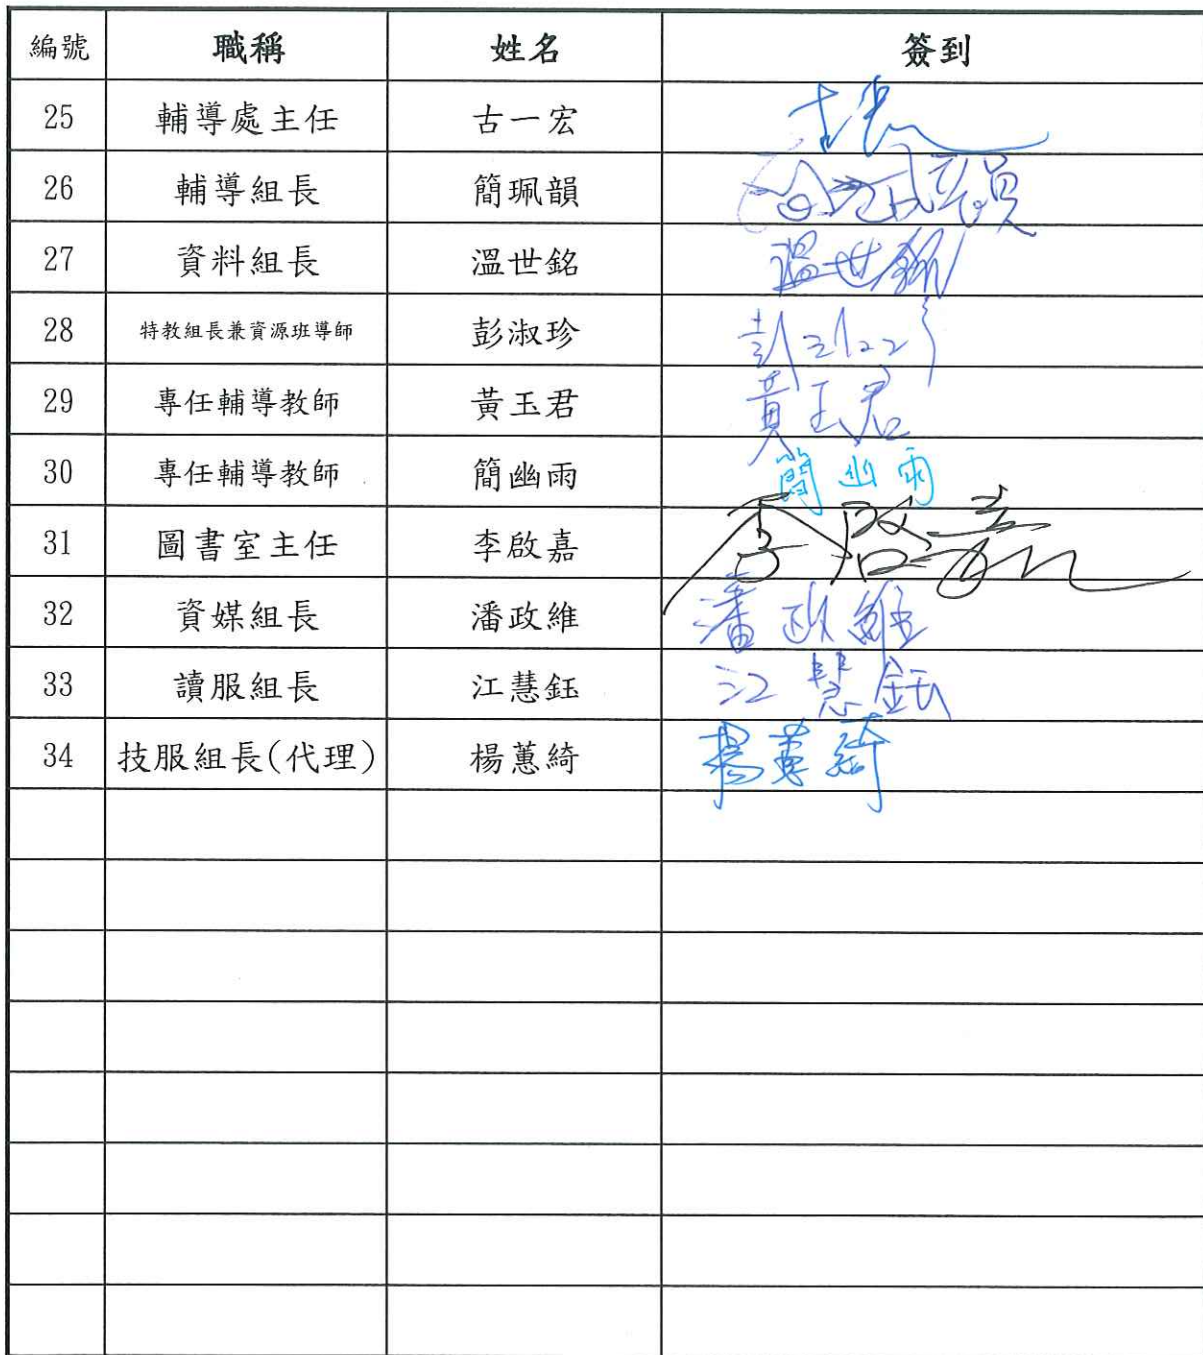 編號 職稱 姓名 簽到
25 輔導處主任 古一宏
26 輔導組長 簡珮韻 簡珮韻
27 資料組長 溫世銘 溫世銘
28 特教組長兼資源班導師 彭淑珍 彭淑珍
29 專任輔導教師 黃玉君 黃玉君
30 專任輔導教師 簡幽雨 簡幽雨
31 圖書室主任 李啟嘉 李啟嘉
32 資媒組長 潘政維 潘政維
33 讀服組長 江慧鈺 江慧鈺
34 技服組長(代理) 楊蕙綺 楊蕙綺